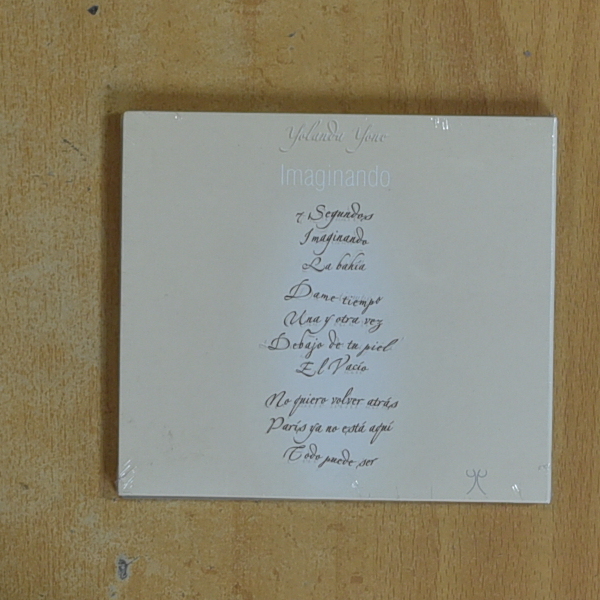 Yolanda Yone
Imaginando
7 Segundos
Imaginando
La bahía
Dame tiempo
Una y otra vez
Debajo de tu piel
El Vacío
No quiero volver atrás
París ya no está aquí
Todo puede ser